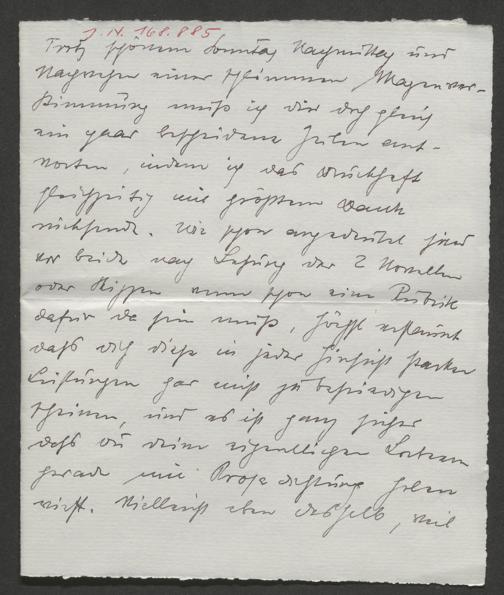 J.N. 168.885
Trotz schönem Sonntag Nachmittag und
Nachwehen einer schlimmen Magenver-
stimmung muß ich dir doch gleich
ein paar bescheidene Zeilen ant-
worten, indem ich das Druckheft
gleichzeitig mit größtem Dank
rücksende. Wie schon angedeutet sind
wir beide nach Lesung der 2 Novellen
oder Skizzen wenn schon eine Rubrik
dafür da sein muß, höchst erstaunt
daß dich diese in jeder Hinsicht starken
Leistungen gar nicht zu befriedigen
scheinen, und es ist ganz sicher
daß du deine eigentlichen Lorbeeren
gerade mit Prosadichtung holen
wirst. Vielleicht eben deshalb, weil